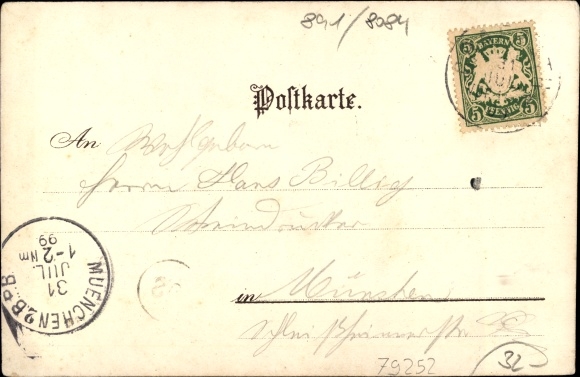 891/8984
5 BAYERN 5
5 PFENNIG 5
Postkarte.
An Wohlgeborn
Herrn Hans Billig
Steindrucker
MUENCHEN 2 B.P.B
31
JUL
1-2 Nm
99
in München
Schleißheimerstr
79252
32-